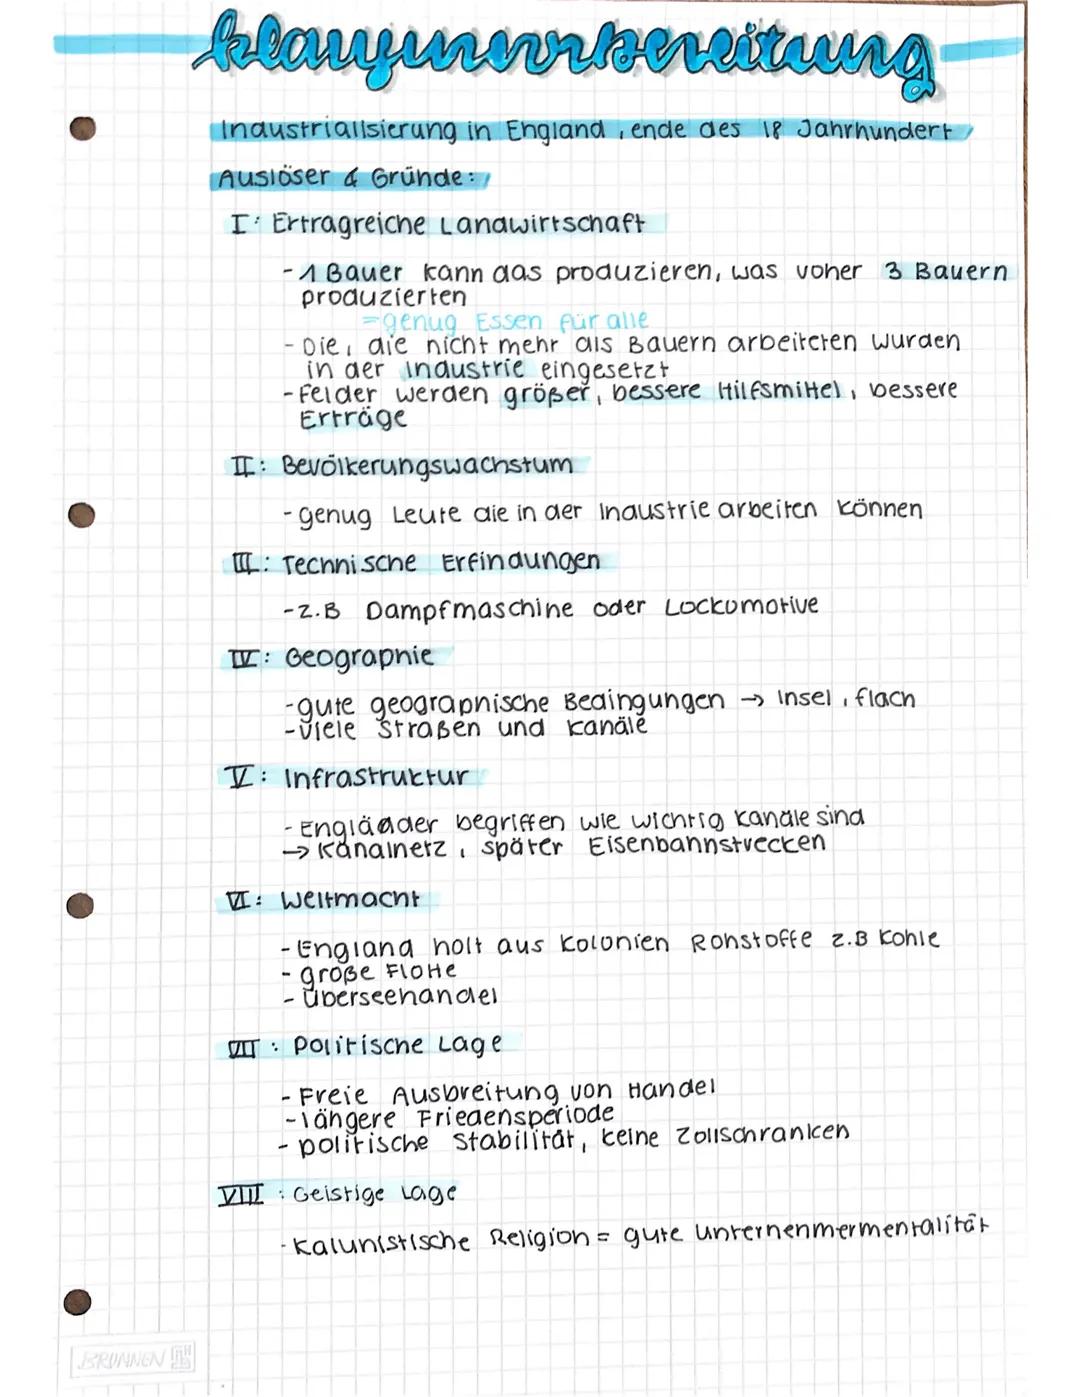 klausurvorbereitung
Industrialisierung in England, ende des 18 Jahrhundert
Auslöser & Gründe:
I: Ertragreiche Landwirtschaft
- 1 Bauer kann das produzieren, was voher 3 Bauern
produzierten
=genug Essen für alle
- Die, die nicht mehr als Bauern arbeiteten wurden
in der Industrie eingesetzt
- Felder werden größer, bessere Hilfsmittel, bessere
Erträge
II: Bevölkerungswachstum
- genug Leute die in der Industrie arbeiten können
III: Technische Erfindungen
- z.B Dampfmaschine oder Lockomotive
IV: Geographie
- gute geographische Bedingungen → Insel, flach
- viele Straßen und Kanäle
V: Infrastruktur
- Engländer begriffen wie wichtig Kanäle sind
→ Kanalnetz, später Eisenbahnstrecken
VI: Weltmacht
- England holt aus Kolonien Rohstoffe z.B Kohle
- große Flotte
- Überseehandel
VII: Politische Lage
- Freie Ausbreitung von Handel
- längere Friedensperiode
- politische Stabilität, keine Zollschranken
VIII: Geistige Lage
- Kalvnistische Religion = gute Unternehmermentalität
BRUNNEN